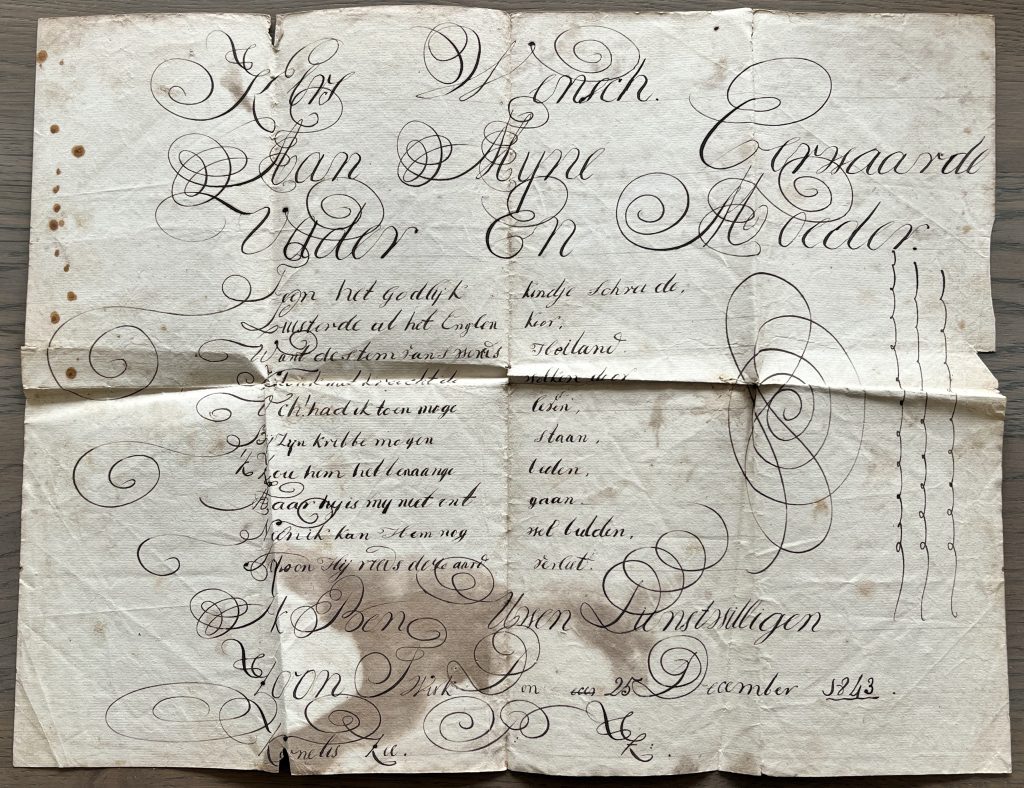 Kers Wensch.
Aan Myne Eerwaarde
Vader En Moeder.
Toen het godlijk kindje schreide,
Luisterde al het Englen koor,
Want de stem van Holland.
wolken door
Och! had ik toen moge lesen,
By Zyn kribbe mogen staan,
'k Zou hem het benaange beden,
Maar hy is my niet ont gaan.
Neen ik kan Hem nog wel bidden,
Schoon Hij reeds deze aard verlat.
Ik Ben Uwen Dienstwilligen
Zoon Den 25 December 1843.
Kornelis Kee. K: